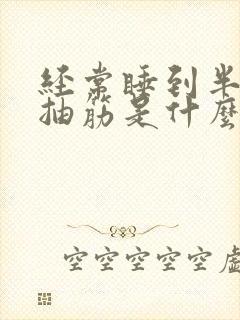 经常睡到半
抽筋是什麼
空空空空空虛